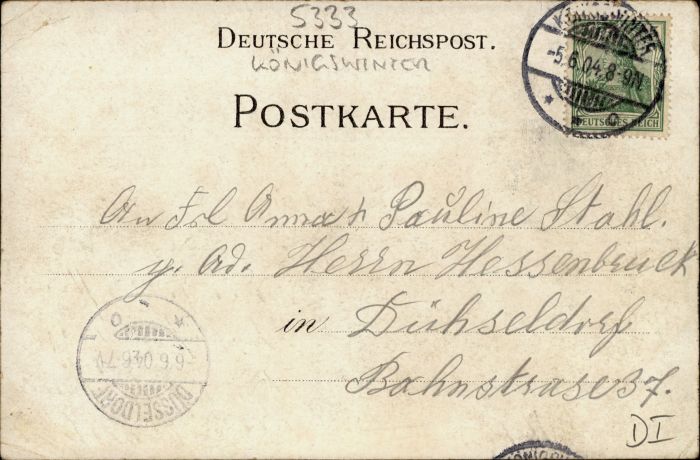 5333
DEUTSCHE REICHSPOST.
KÖNIGSWINTER
POSTKARTE.
-5.6.04.8-9N
DEUTSCHES REICH
An Frl Anna & Pauline Stahl.
p. Ad. Herrn Hessenbruck
in Dühseldorf
Bahnstrase 37.
6.6.04.6-7
DÜSSELDORF
DI